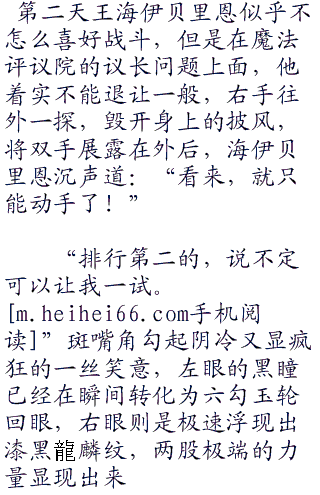 第二天王海伊贝里恩似乎不
怎么喜好战斗，但是在魔法
评议院的议长问题上面，他
着实不能退让一般，右手往
外一探，毁开身上的披风，
将双手展露在外后，海伊贝
里恩沉声道：“看来，就只
能动手了！”
“排行第二的，说不定
可以让我一试。
[m.heihei66.com手机阅
读]”斑嘴角勾起阴冷又显疯
狂的一丝笑意，左眼的黑瞳
已经在瞬间转化为六勾玉轮
回眼，右眼则是极速浮现出
漆黑龍麟纹，两股极端的力
量显现出来